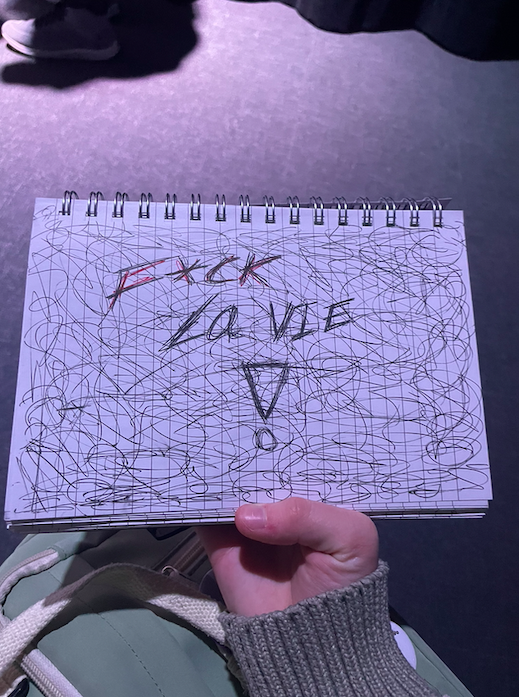 FxCK
La VIE
!